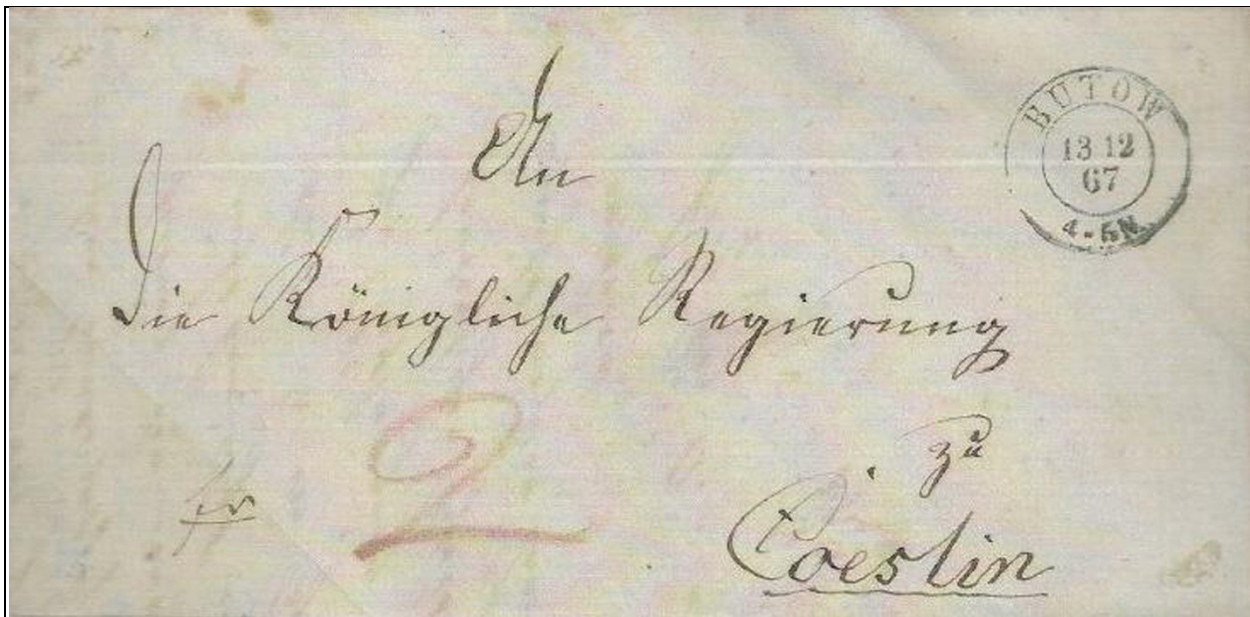 An
BUTOW
13 12
67
4-5N
Die Königliche Regierung
2
zu
fr
Coeslin